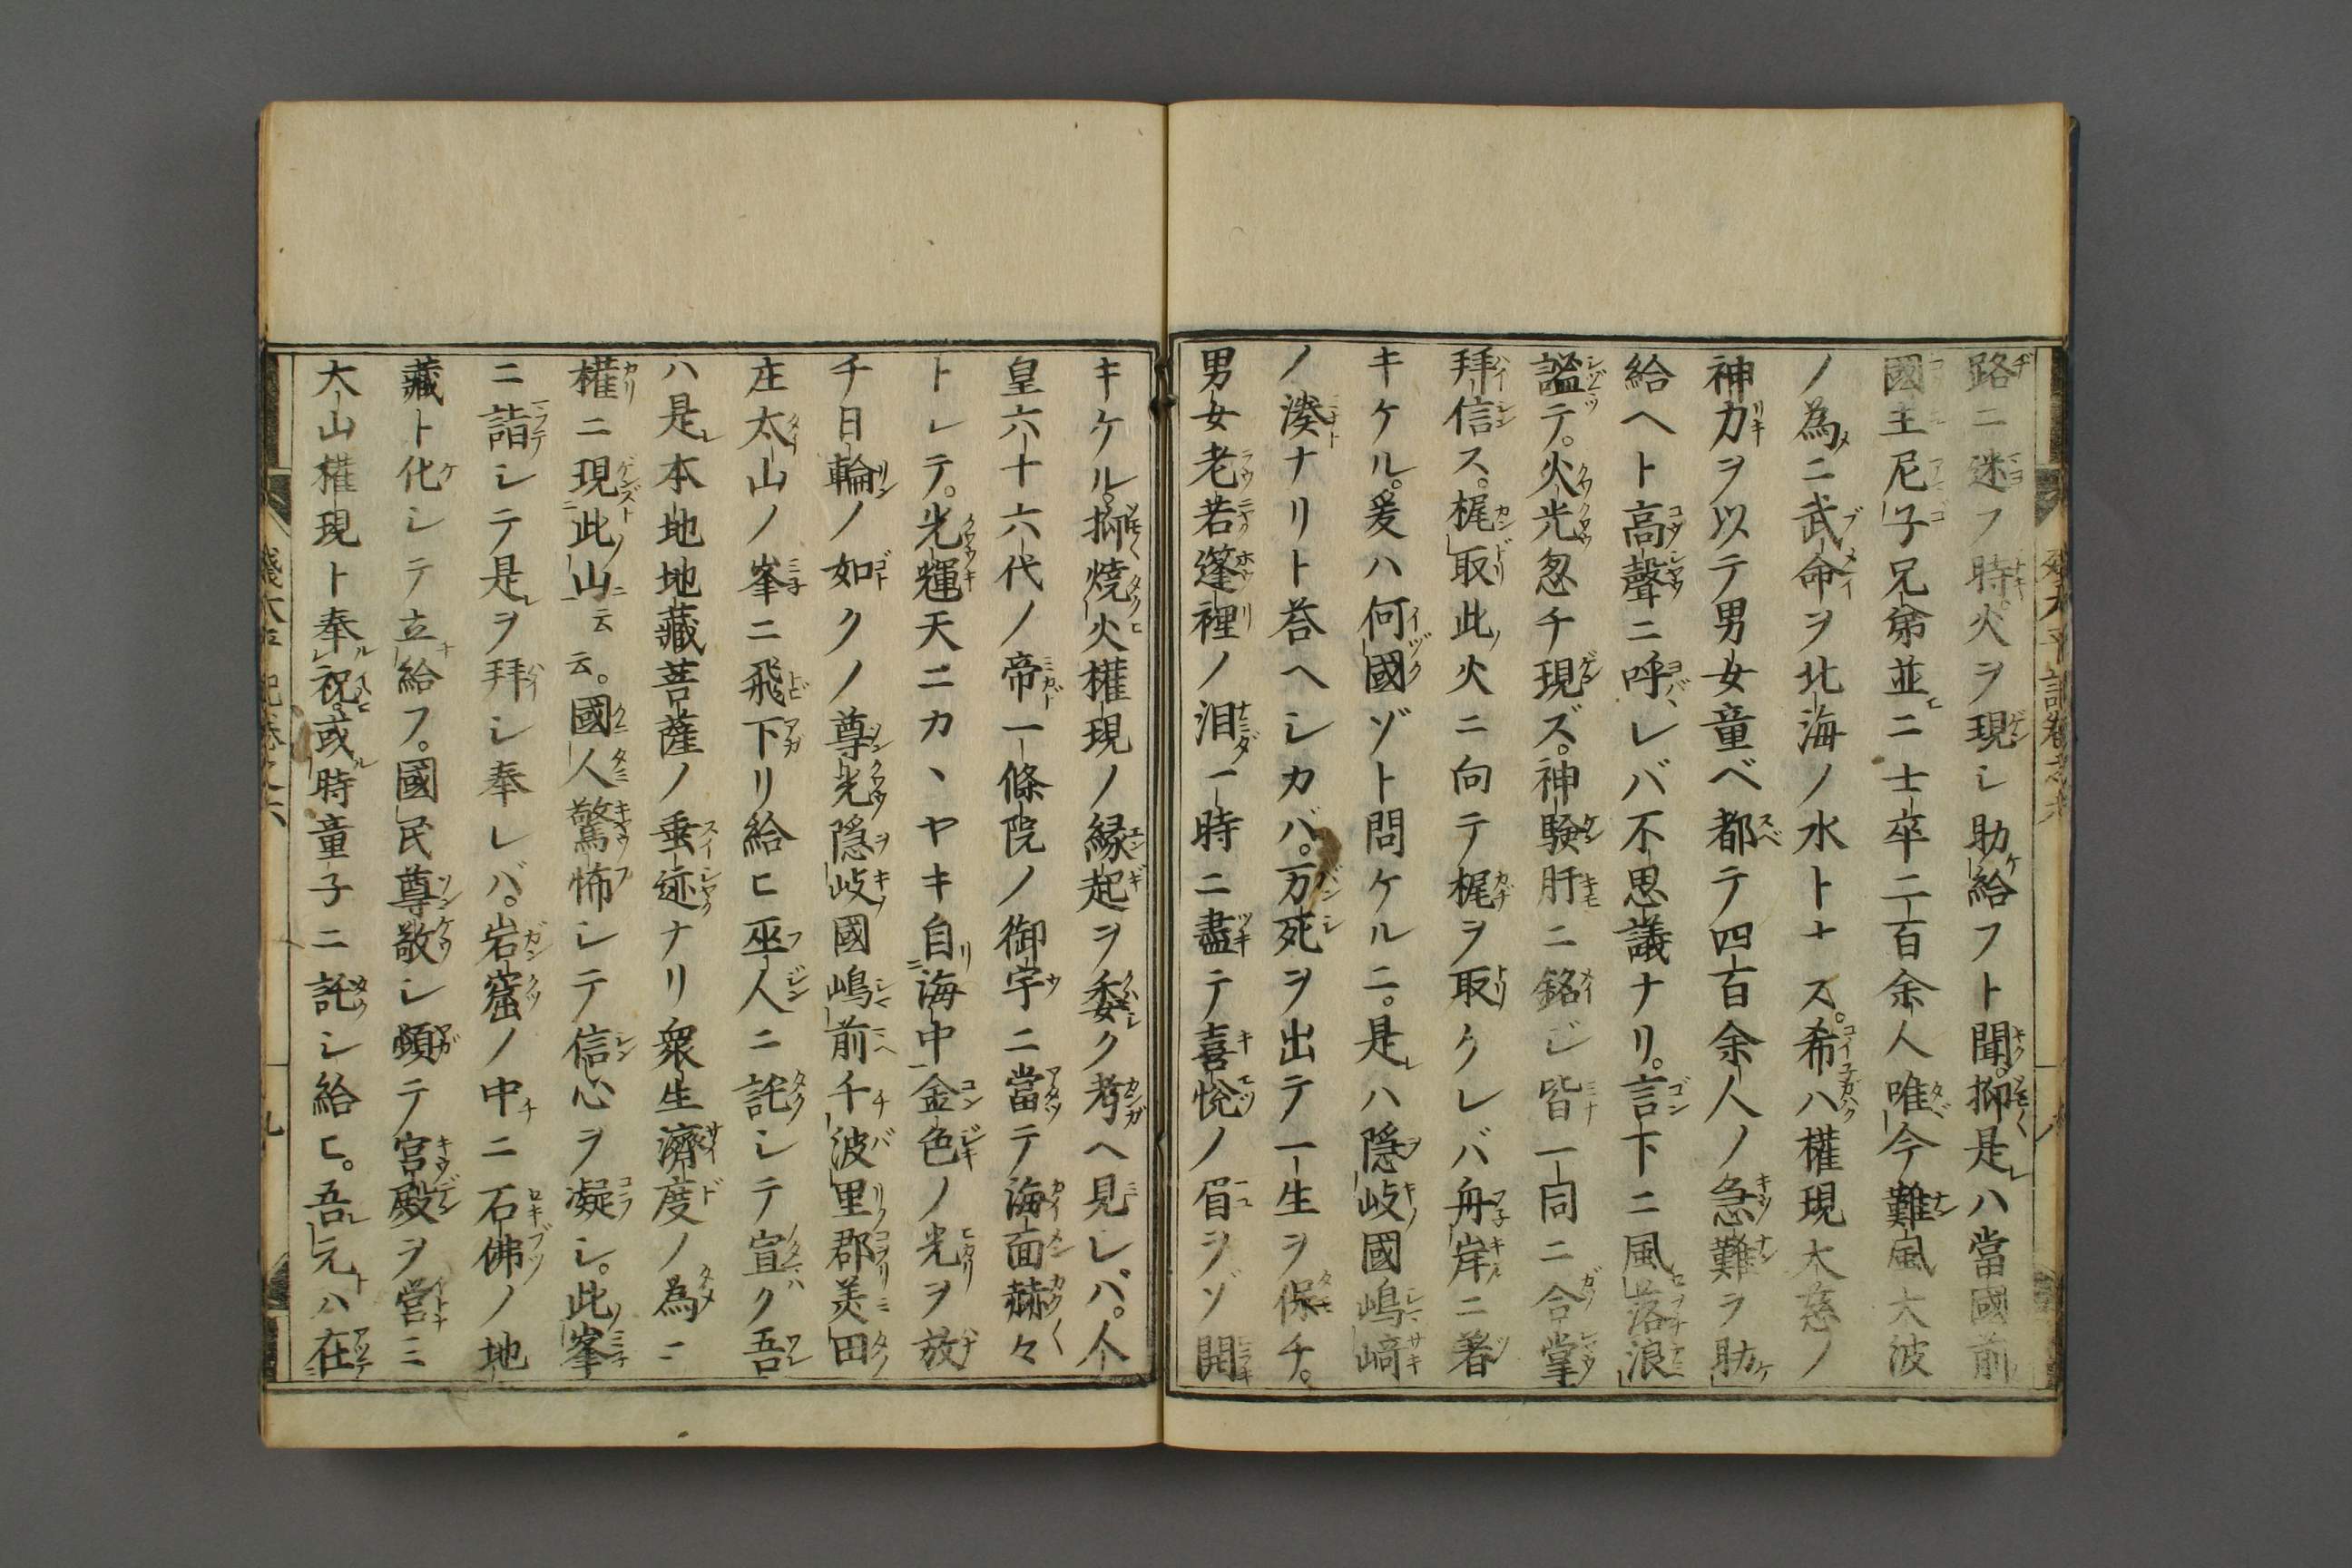 路ニ迷フ時。火ヲ現シ助給フト聞。抑是ハ當國前
國主尼子兄弟並ニ士卒二百余人唯今難風大波
ノ為ニ武命ヲ北海ノ水トナス。希ハ權現大慈ノ
神力ヲ以テ男女童ベ都テ四百余人ノ急難ヲ助
給ヘト高聲ニ呼レバ不思議ナリ。言下ニ風落浪
謐テ。火光忽チ現ズ。神驗肝ニ銘ジ皆一同ニ合掌
拜信ス。梶取此火ニ向テ梶ヲ取クレバ舟岸ニ著
キケル。爰ハ何國ゾト問ケルニ。是ハ隠岐國嶋﨑
ノ湊ナリト荅ヘシカバ。万死ヲ出テ一生ヲ保チ。
男女老若篷裡ノ泪一時ニ盡テ喜悅ノ眉ヲゾ開
キケル。抑燒火權現ノ縁起ヲ委ク考ヘ見レバ。人
皇六十六代ノ帝一條院ノ御宇ニ當テ海面赫々
トシテ。光輝天ニカヽヤキ自海中金色ノ光ヲ放
チ日輪ノ如クノ尊光隠岐國嶋前千波里郡美田
庄太山ノ峯ニ飛下リ給ヒ巫人ニ託シテ宣ク吾
ハ是本地地藏菩薩ノ垂迹ナリ衆生濟度ノ為ニ
權ニ現此山云云。國人驚怖シテ信心ヲ凝シ。此峯
ニ詣シテ是ヲ拜シ奉レバ。岩窟ノ中ニ石佛ノ地
藏ト化シテ立給フ。國民尊敬シ頓テ宮殿ヲ営ミ
大山權現ト奉祝。或時童子ニ託シ給ヒ。吾元ハ在
九